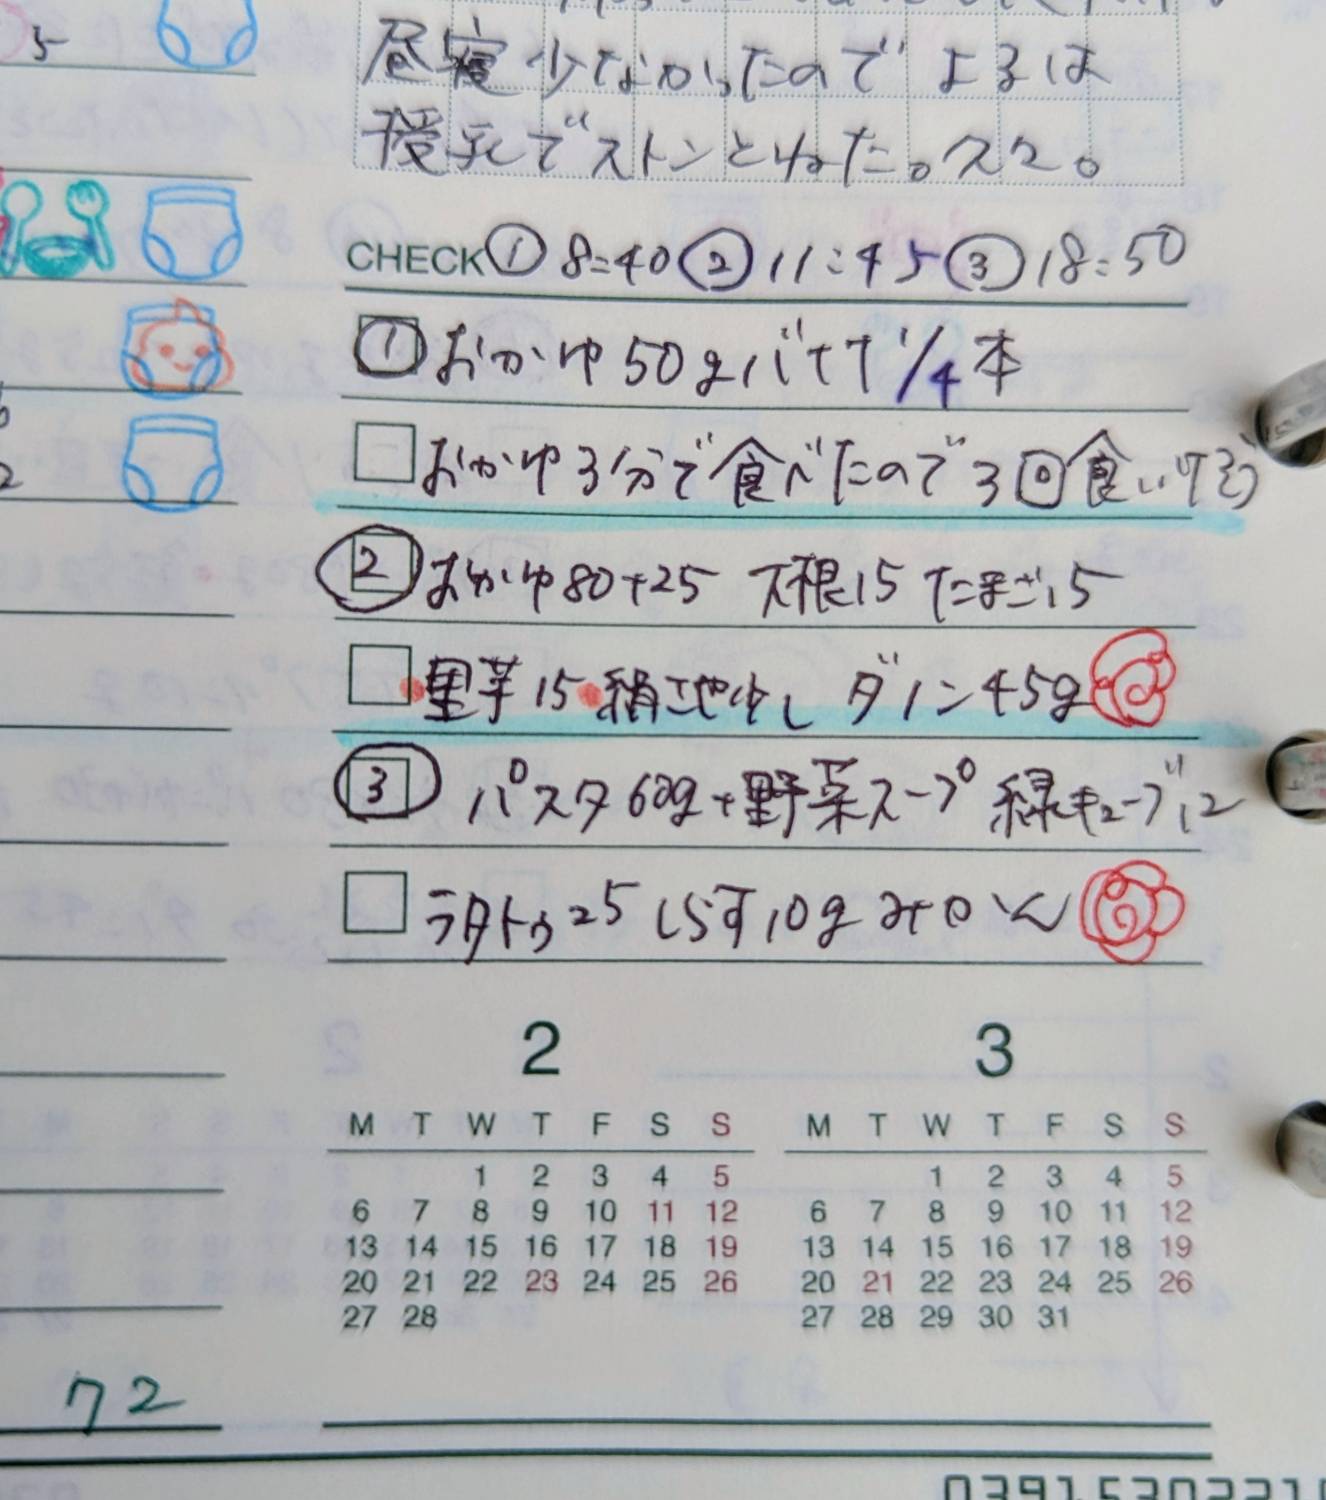 5
昼寝少なかったのでよるは
授乳でストンとねた。スヤ。
CHECK ① 8:40 ② 11:45 ③ 18:50
① おかゆ50g バナナ1/4本
おかゆ3分で食べたので3回食いけそう
② おかゆ80+25 大根15 たまご15
里芋15 絹さや少し ダノン45g
③ パスタ60g+野菜スープ 緑キューブ12
ラタトゥ25 しらす10g みかん
2 3
M T W T F S S M T W T F S S
1 2 3 4 5 1 2 3 4 5
6 7 8 9 10 11 12 6 7 8 9 10 11 12
13 14 15 16 17 18 19 13 14 15 16 17 18 19
20 21 22 23 24 25 26 20 21 22 23 24 25 26
27 28 27 28 29 30 31
72